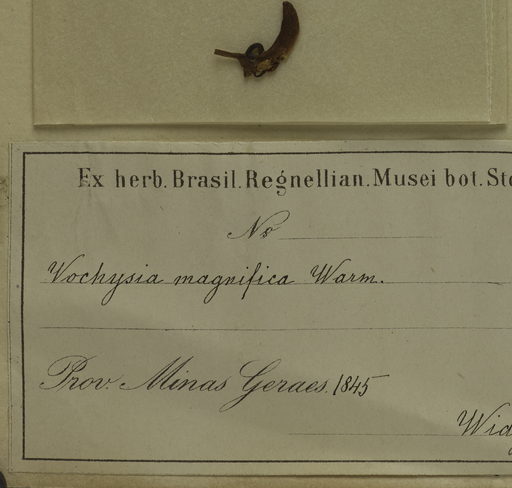 Ex herb. Brasil. Regnellian. Musei bot. Sto
No
Vochysia magnifica Warm.
Prov. Minas Geraes. 1845
Wid